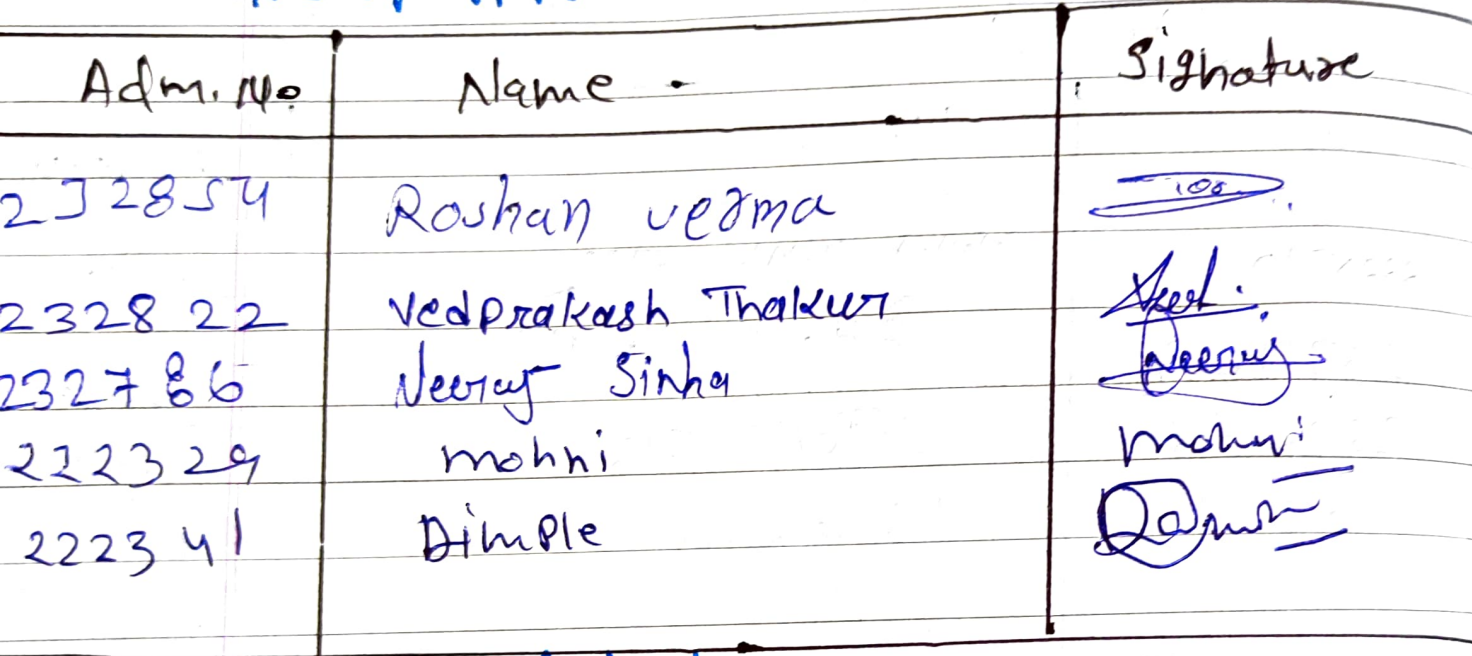 Adm. No. Name Signature
232854 Roshan verma
232822 Vedprakash Thakur
232786 Neeraj Sinha Neeraj
222329 mohni mohni
222341 Dimple